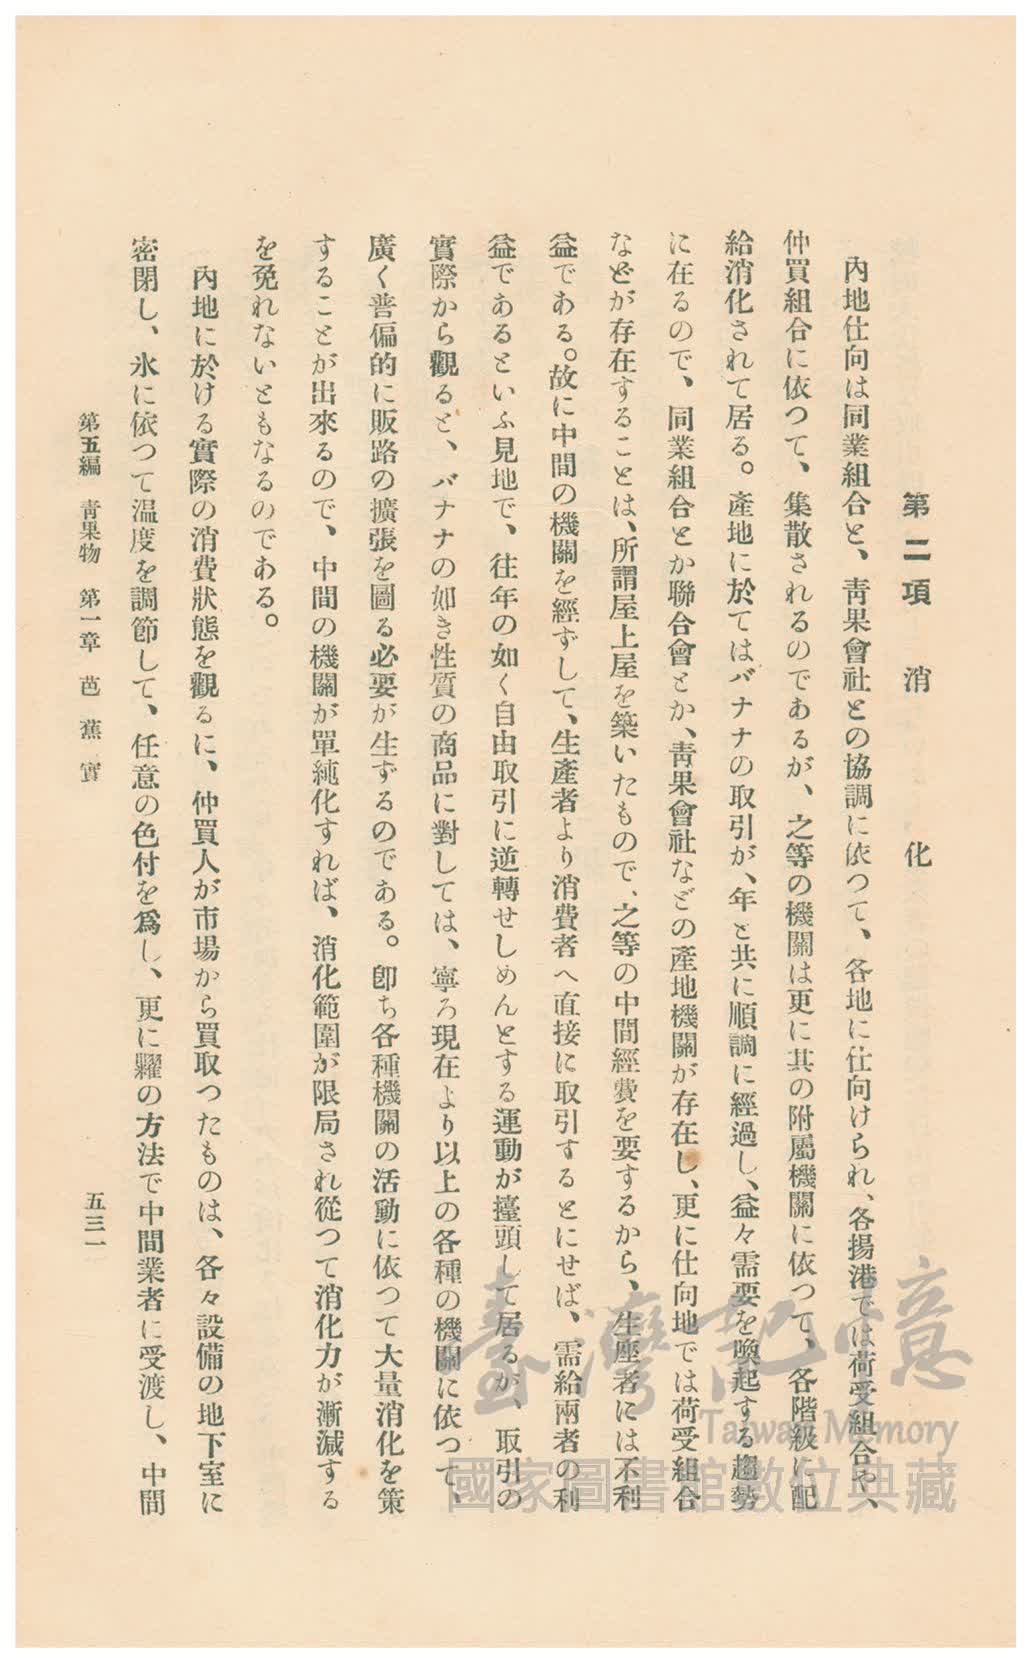 第二項　消　化
內地仕向は同業組合と、靑果會社との協調に依つて、各地に仕向けられ、各揚港では荷受組合や、
仲買組合に依つて、集散されるのであるが、之等の機關は更に其の附屬機關に依つて、各階級に配
給消化されて居る。產地に於てはバナナの取引が、年と共に順調に經過し、益々需要を喚起する趨勢
に在るので、同業組合とか聯合會とか、靑果會社などの產地機關が存在し、更に仕向地では荷受組合
などが存在することは、所謂屋上屋を築いたもので、之等の中間經費を要するから、生座者には不利
益である。故に中間の機關を經ずして、生產者より消費者へ直接に取引するとにせば、需給兩者の利
益であるといふ見地で、往年の如く自由取引に逆轉せしめんとする運動が擡頭して居るが、取引の
實際から觀ると、バナナの如き性質の商品に對しては、寧ろ現在より以上の各種の機關に依つて、
廣く善偏的に販路の擴張を圖る必要が生ずるのである。卽ち各種機關の活動に依つて大量消化を策
することが出來るので、中間の機關が單純化すれば、消化範圍が限局され從つて消化力が漸減する
を免れないともなるのである。
內地に於ける實際の消費狀態を觀るに、仲買人が市場から買取つたものは、各々設備の地下室に
密閉し、氷に依つて溫度を調節して、任意の色付を爲し、更に糶の方法で中間業者に受渡し、中間
第五編　靑果物　第一章　芭蕉實
五三一
臺灣記憶
Taiwan Memory
國家圖書館數位典藏